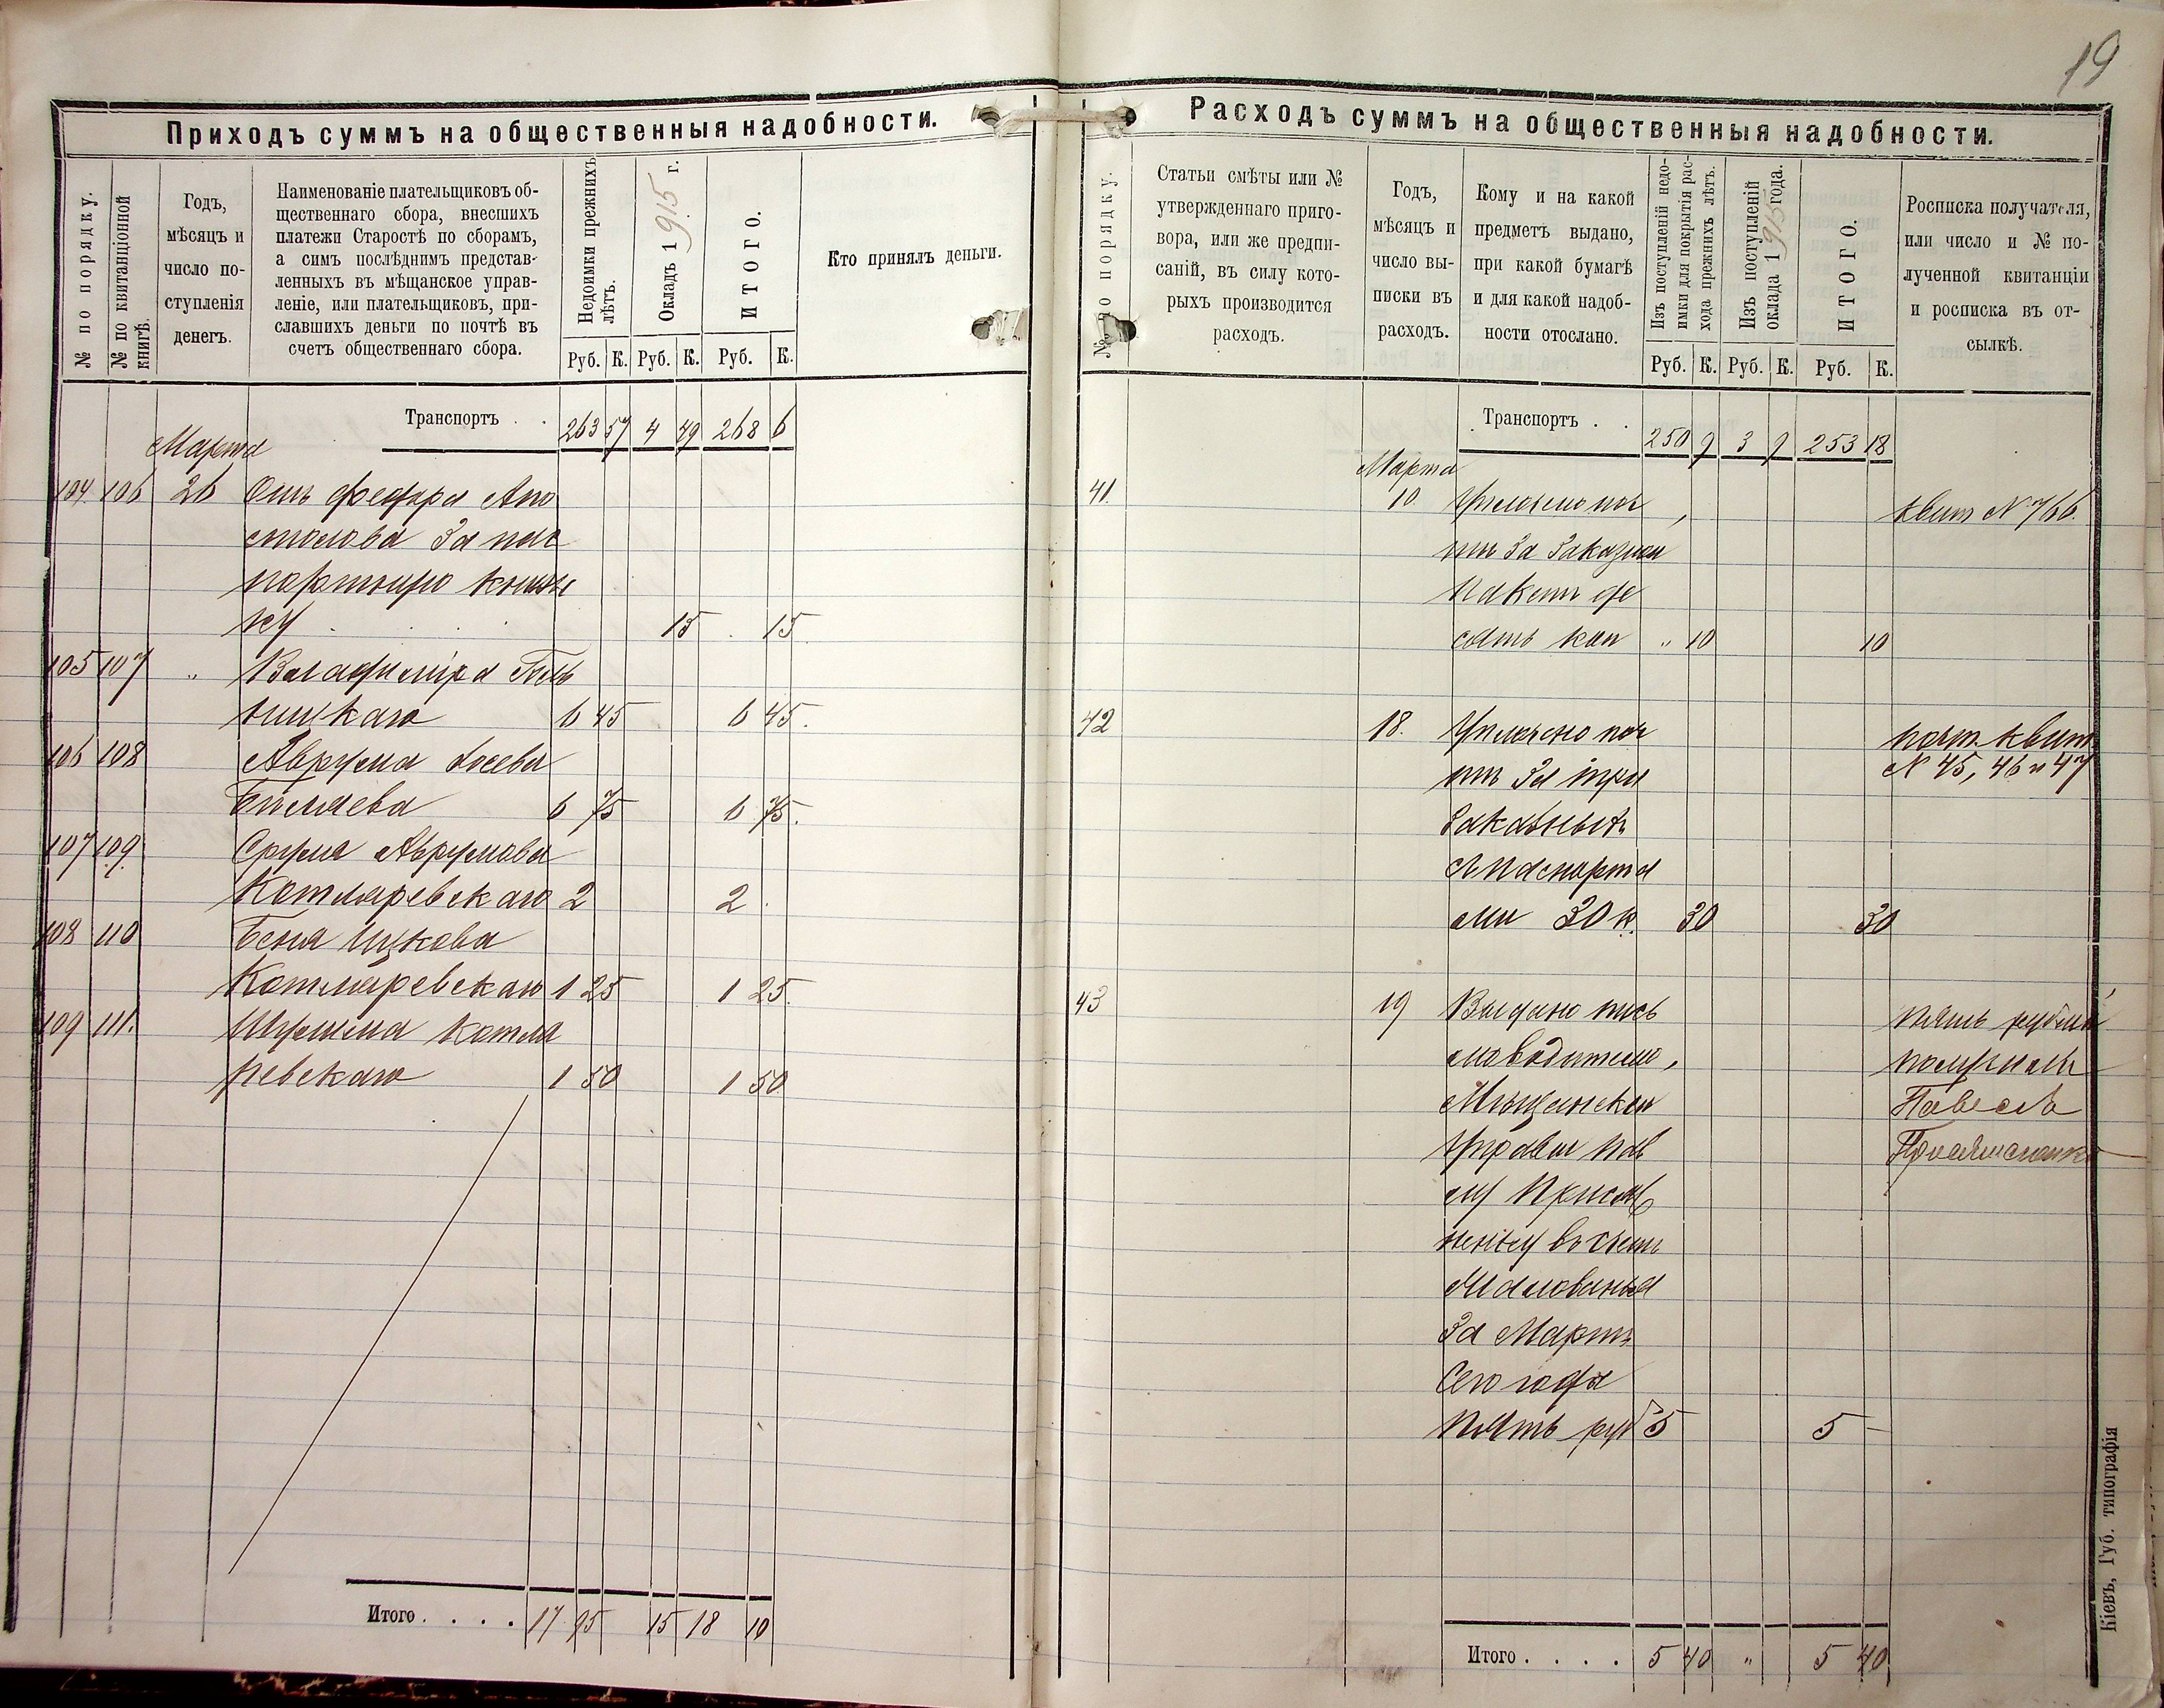 19
Приходъ суммъ на общественныя надобности.
№ по порядку.
№ по квитанціонной
книгѣ.
Годъ,
мѣсяцъ и
число по-
ступленія
денегъ.
Наименованіе плательщиковъ об-
щественнаго сбора, внесшихъ
платежи Старостѣ по сборамъ,
а симъ послѣднимъ представ-
ленныхъ въ мѣщанское управ-
леніе, или плательщиковъ, при-
славшихъ деньги по почтѣ въ
счетъ общественнаго сбора.
Недоимки прежнихъ
лѣтъ.
Окладъ 1915 г.
ИТОГО.
Кто принялъ деньги.
Руб. К. Руб. К. Руб. К.
Транспортъ . . 263 57 4 49 268 6
Марта
104 106 26 Отъ Федора Апо
столова За пас
портную книж
ку . . . . 15 . 15
105 107 „ Владиміра
ницкаго 6 45 6 45.
106 108 Аврума
Биляева 6 75 6 75.
107 109. Срула Аврумова
Котляревскаго 2 2 .
108 110 Беня Ицкова
Котляревскаго 1 25 1 25.
109 111. Котля
ревскаго 1 50 1 50
Итого . . . . 17 95 15 18 10
Расходъ суммъ на общественныя надобности.
№ по порядку.
Статьи смѣты или №
утвержденнаго приго-
вора, или же предпи-
саній, въ силу кото-
рыхъ производится
расходъ.
Годъ,
мѣсяцъ и
число вы-
писки въ
расходъ.
Кому и на какой
предметъ выдано,
при какой бумагѣ
и для какой надоб-
ности отослано.
Изъ поступленій недо-
имки для покрытія рас-
хода прежнихъ лѣтъ.
Изъ поступленій
оклада 1915 года.
ИТОГО.
Росписка получателя,
или число и № по-
лученной квитанціи
и росписка въ от-
сылкѣ.
Руб. К. Руб. К. Руб. К.
Транспортъ . . 250 9 3 9 253 18
Марта
41. 10. Уплочено поч квит №766.
тѣ За Заказной
Пакетъ де
сять коп „ 10 10
42 18. Уплочено поч почт. квит
тѣ За три № 45, 46 и 47
Заказныхъ
съ Паспорта
ми 30 к. 30 30
43 19 Выдано пись пять рублей
моводителю, получилъ
Мѣщанской Павелъ
Управы Пав
лу
ненку въ счетъ
Жалованья
За Мартъ
Сего года
Пять руб 5 5 —
Итого . . . . 5 40 „ 5 40
Кіевъ, Губ. типографія